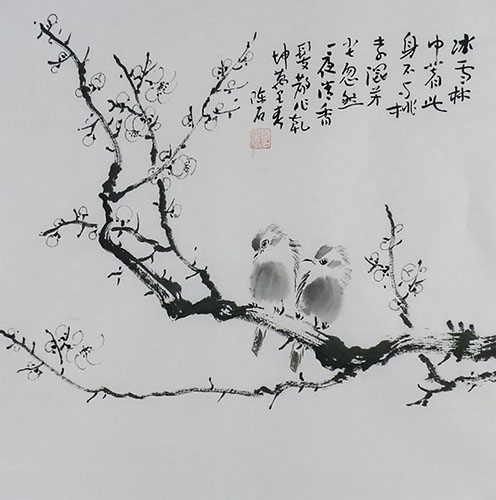 冰雪林
中著此
身不与桃
李混芳
尘忽然
一夜清香
發散作乾
坤萬里春
陈石